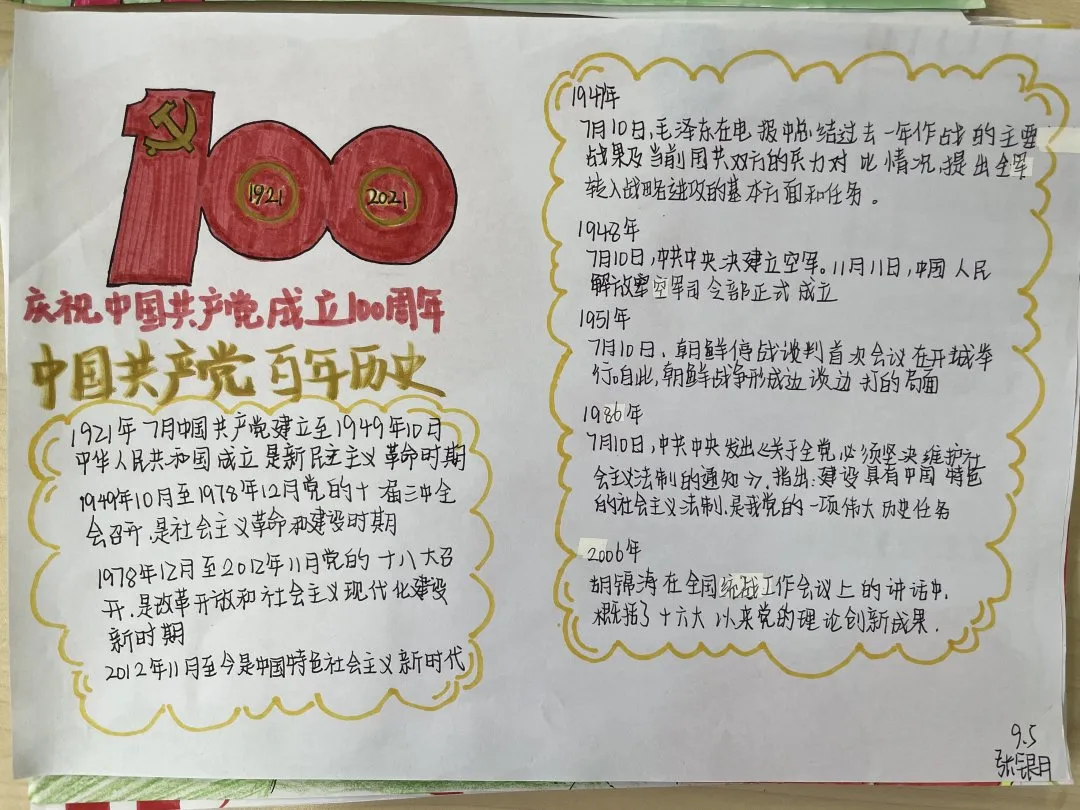 1921
2021
庆祝中国共产党成立100周年
中国共产党百年历史
1921年7月中国共产党建立至1949年10月
中华人民共和国成立是新民主主义革命时期
1949年10月至1978年12月党的十一届三中全
会召开,是社会主义革命和建设时期
1978年12月至2012年11月党的十八大召
开,是改革开放和社会主义现代化建设
新时期
2012年11月至今是中国特色社会主义新时代
1947年
7月10日,毛泽东在电报中总结过去一年作战的主要
战果及当前国共双方的兵力对比情况,提出全军
转入战略进攻的基本方面和任务。
1948年
7月10日,中共中央决建立空军。11月11日,中国人民
解放军空军司令部正式成立
1951年
7月10日,朝鲜停战谈判首次会议在开城举
行。自此,朝鲜战争形成边谈边打的局面
1986年
7月10日,中共中央发出《关于全党必须坚决维护社
会主义法制的通知》,指出:建设具有中国特色
的社会主义法制,是我党的一项伟大历史任务
2006年
胡锦涛在全国统战工作会议上的讲话中,
概括了十六大以来党的理论创新成果.
9.5